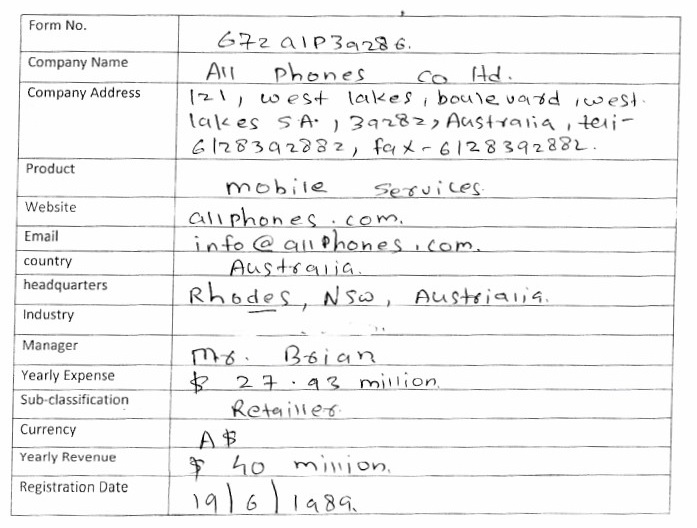 Form No.
672A1P39286.
Company Name
All Phones Co ltd.
Company Address
121, west lakes, boulevard, west.
lakes S.A., 39282, Australia, teli-
6128392882, fax-6128392882.
Product
mobile services.
Website
allphones.com.
Email
info@allphones.com.
country
Australia.
headquarters
Rhodes, NSW, Austrialia.
Industry
Manager
Mr. Brian
Yearly Expense
$ 27.93 million.
Sub-classification
Retailler.
Currency
A$
Yearly Revenue
$ 40 million.
Registration Date
19/6/1989.